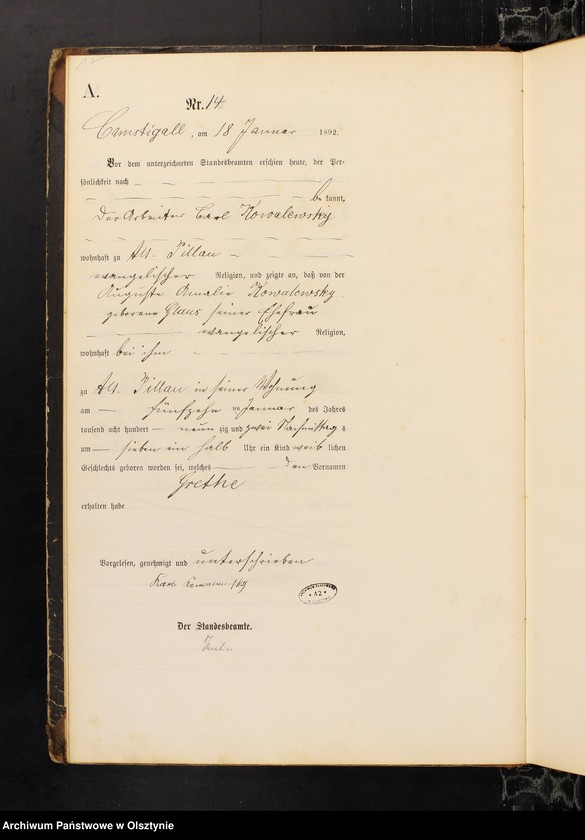 A.
Nr. 14
Camstigall, am 18 Januar 1892.
Vor dem unterzeichneten Standesbeamten erschien heute, der Per-
sönlichkeit nach
be kannt,
Der Arbeiter Carl Kowalewsky
wohnhaft zu Alt-Pillau
evangelischer Religion, und zeigte an, daß von der
Auguste Amalie Kowalewsky
geborene Glaus seiner Ehefrau
evangelischer Religion,
wohnhaft bei ihm
zu Alt-Pillau in seiner Wohnung
am fünfzehn ten Januar des Jahres
tausend acht hundert neun zig und zwei Nachmittag s
um sieben ein halb Uhr ein Kind weib lichen
Geschlechts geboren worden sei, welches den Vornamen
Grethe
erhalten habe
Vorgelesen, genehmigt und unterschrieben
Karl
A2
Der Standesbeamte.
Archiwum Państwowe w Olsztynie